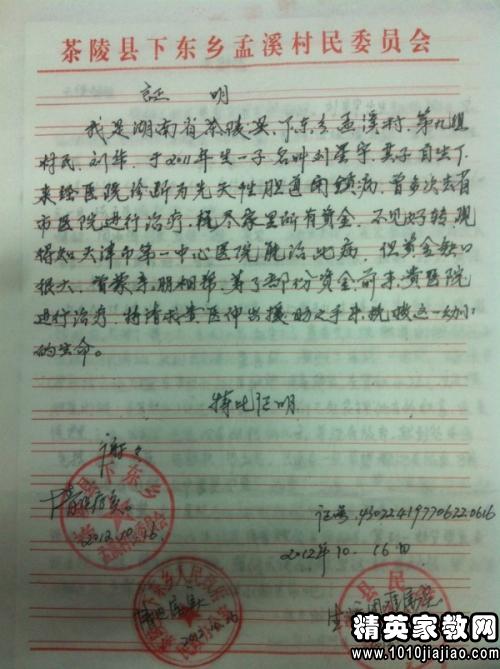 茶陵县下东乡孟溪村民委员会
证 明
我是湖南省茶陵县、下东乡孟溪村、第九组
村民、刘华、于2011年生一子名叫刘星宇、其子自生下
来经医院诊断为先天性胆道闭锁病、曾多次去省
市医院进行治疗、耗尽家里所有资金、不见好转、现
得知天津市第一中心医院能治此病、但资金缺口
很大、曾蒙亲朋相帮、筹了部份资金前来贵医院
进行治疗、特请求贵医伸出援助之手来挽救这一幼小
的生命。
特此证明
谢
情况属实
2012.10.16
县下东乡
证号430224197706220616
2012年10.16日
下东乡人民政府
情况属实
2012.10.16
县民
精英家教网
www.1010jiajiao.com